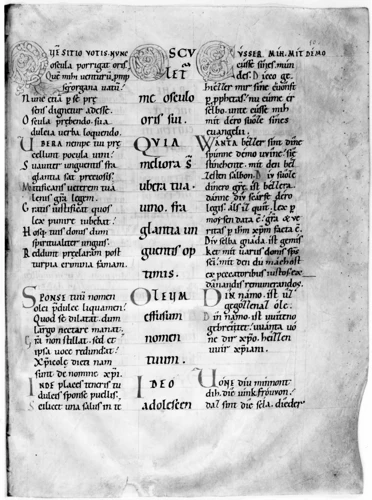 QUE SITIO VOTIS. NUNC
oscula porrigat oris.
Que mihi venturū, pmp
serorgana uatū.
Nunc etiā p se prę
sens dignetur adesse.
Oscula prębendo. sua
dulcia uerba loquendo.
UBERA nempe tui prę
cellunt pocula uini.
Suauiter unguentis fra
glantia sat preciosis.
Mitificans ueterem tua
lenis grā legem.
Gratis iustificat quos
lex punire iubebat.
Hosq; tuis donis dum
spiritualiter unguis.
Reddunt pręclaram post
turpia crimina famam.
SPONSE tuū nomen
olei pdulce liquamen.
Quod se dilatat dum
largo nectare manat.
non stillat. sed et
ipsa uoce redundat.
Xp̄icolę dici nam
sunt de nomine xp̄i.
INDE places teneris tu
dulcis sponse puellis.
Scilicet una salus in te
OSCU
LET
me osculo
oris sui.
QUIA
meliora s̄
ubera tua.
uino. fra
glantia un
guentis op
timis.
OLEUM
effusum
nomen
tuum.
IDEO
adolescen
CUSSER MIH. MIT DEMO
cusse sines mun
des. Dicco ge
hiezzer mir sine cuonft
p pphetas. nu cume er
selbo. unte cusse mih
mit dero suoze sines
euangelii.
WANTA bezzer sint dine
spunne demo uuine. sie
stinchente mit den bez
zesten salbon. Diu suoze
dinero grę. ist bezzera.
danne diu scarfe dero
legis. als iz quit. lex p
moysen data ē. grā & ve
ritas p ihm xp̄m facta ē.
Diu selba gnada ist gemis
ket mit uariis donis spc
scī. mit den du machost
ex peccatoribus iustos. ex
damnandis remunerandos.
DIN namo ist uz
gegozzenaz ole.
Din namo. ist uuiteno
gebreitet. uuanta uo
ne dir xp̄o. heizzen
uuir xp̄iani.
UONE diu minnont
dih. die iunkfrouuon.
daz sint die sela. dieder